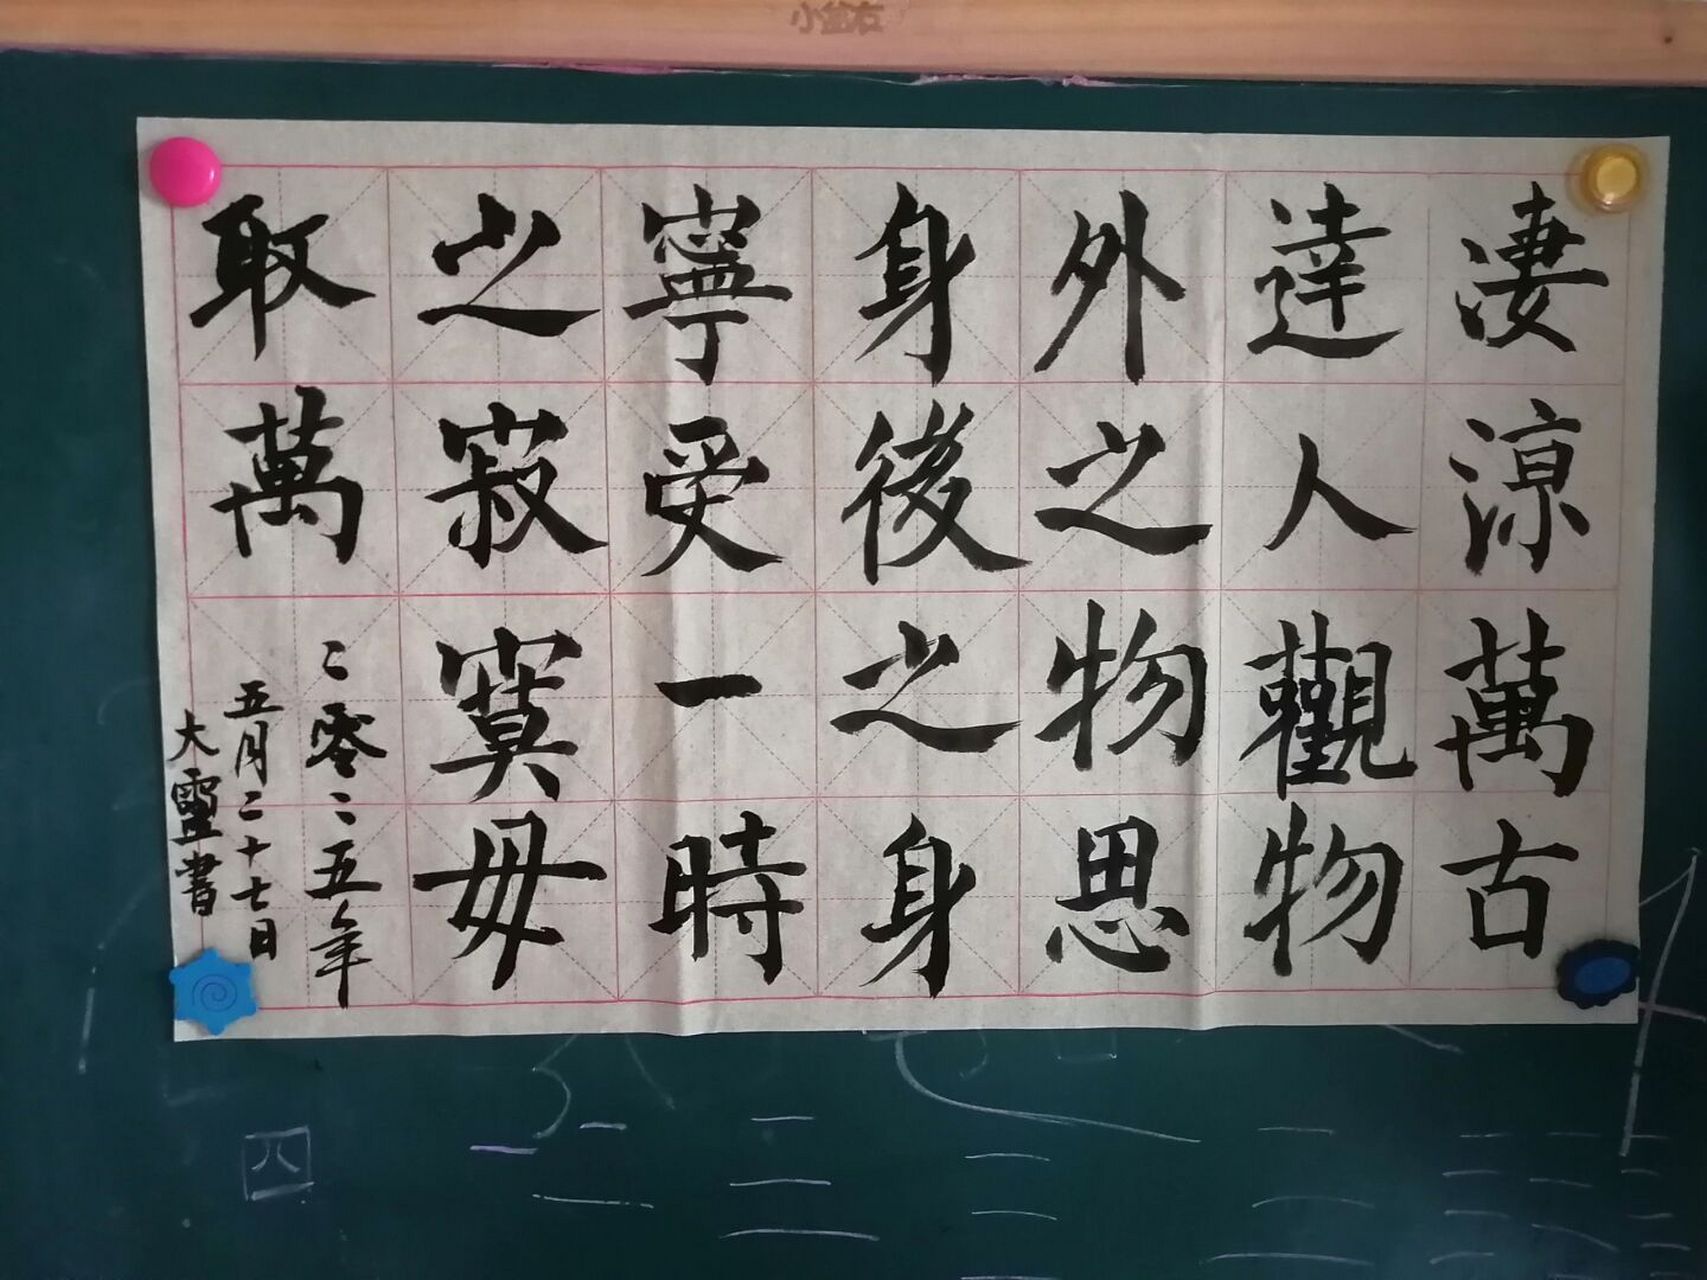 小盆友
凄涼萬古
達人觀物
外之物思
身後之身
寧受一時
之寂寞毋
取萬
二零二五年
五月二十七日
大靈書
四